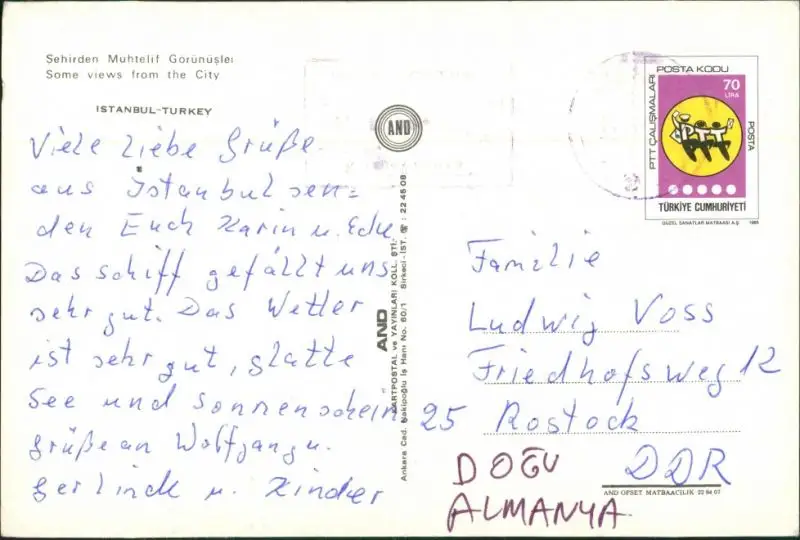 Sehirden Muhtelif Görünüşler
Some views from the City
ISTANBUL-TURKEY
Viele liebe Grüße
aus Istanbul sen=
den Euch Karin u. Edu
Das Schiff gefällt uns
sehr gut. Das Wetter
ist sehr gut, glatte
See und Sonnenschein
Grüße an Wolfgang u.
Gerlinde u. Kinder
AND
AND
KARTPOSTAL ve YAYINLARI KOLL. ŞTİ.
Ankara Cad. Nakipoğlu İş Hanı No. 60/1 Sirkeci-İST. ☎ : 22 45 08
POSTA KODU
PTT ÇALIŞMALARI
70
LİRA
PTT
POSTA
TÜRKİYE CUMHURİYETİ
GÜZEL SANATLAR MATBAASI A.Ş. 1985
Familie
Ludwig Voss
Friedhofsweg 12
25 Rostock
DDR
DOĞU
ALMANYA
AND OFSET MATBAACILIK 22 84 07